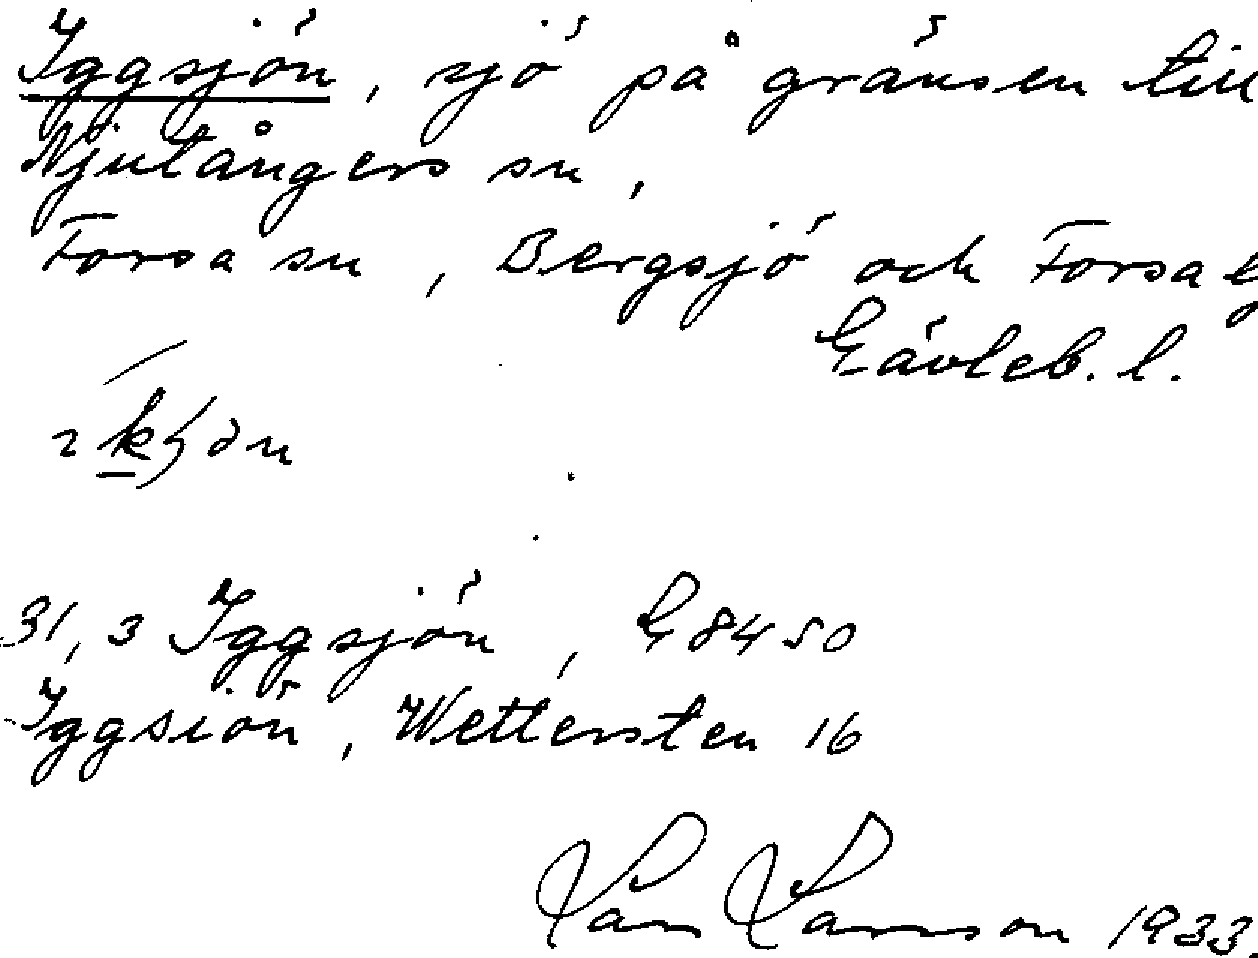 Iggsjön, sjö på gränsen till
Njutångers sn,
Forsa sn, Bergsjö och Forsa
Gävleb. l.
31, 3 Iggsjön, G 8450
Iggsiön, Wettersten 16
Lars Larsson 1933.